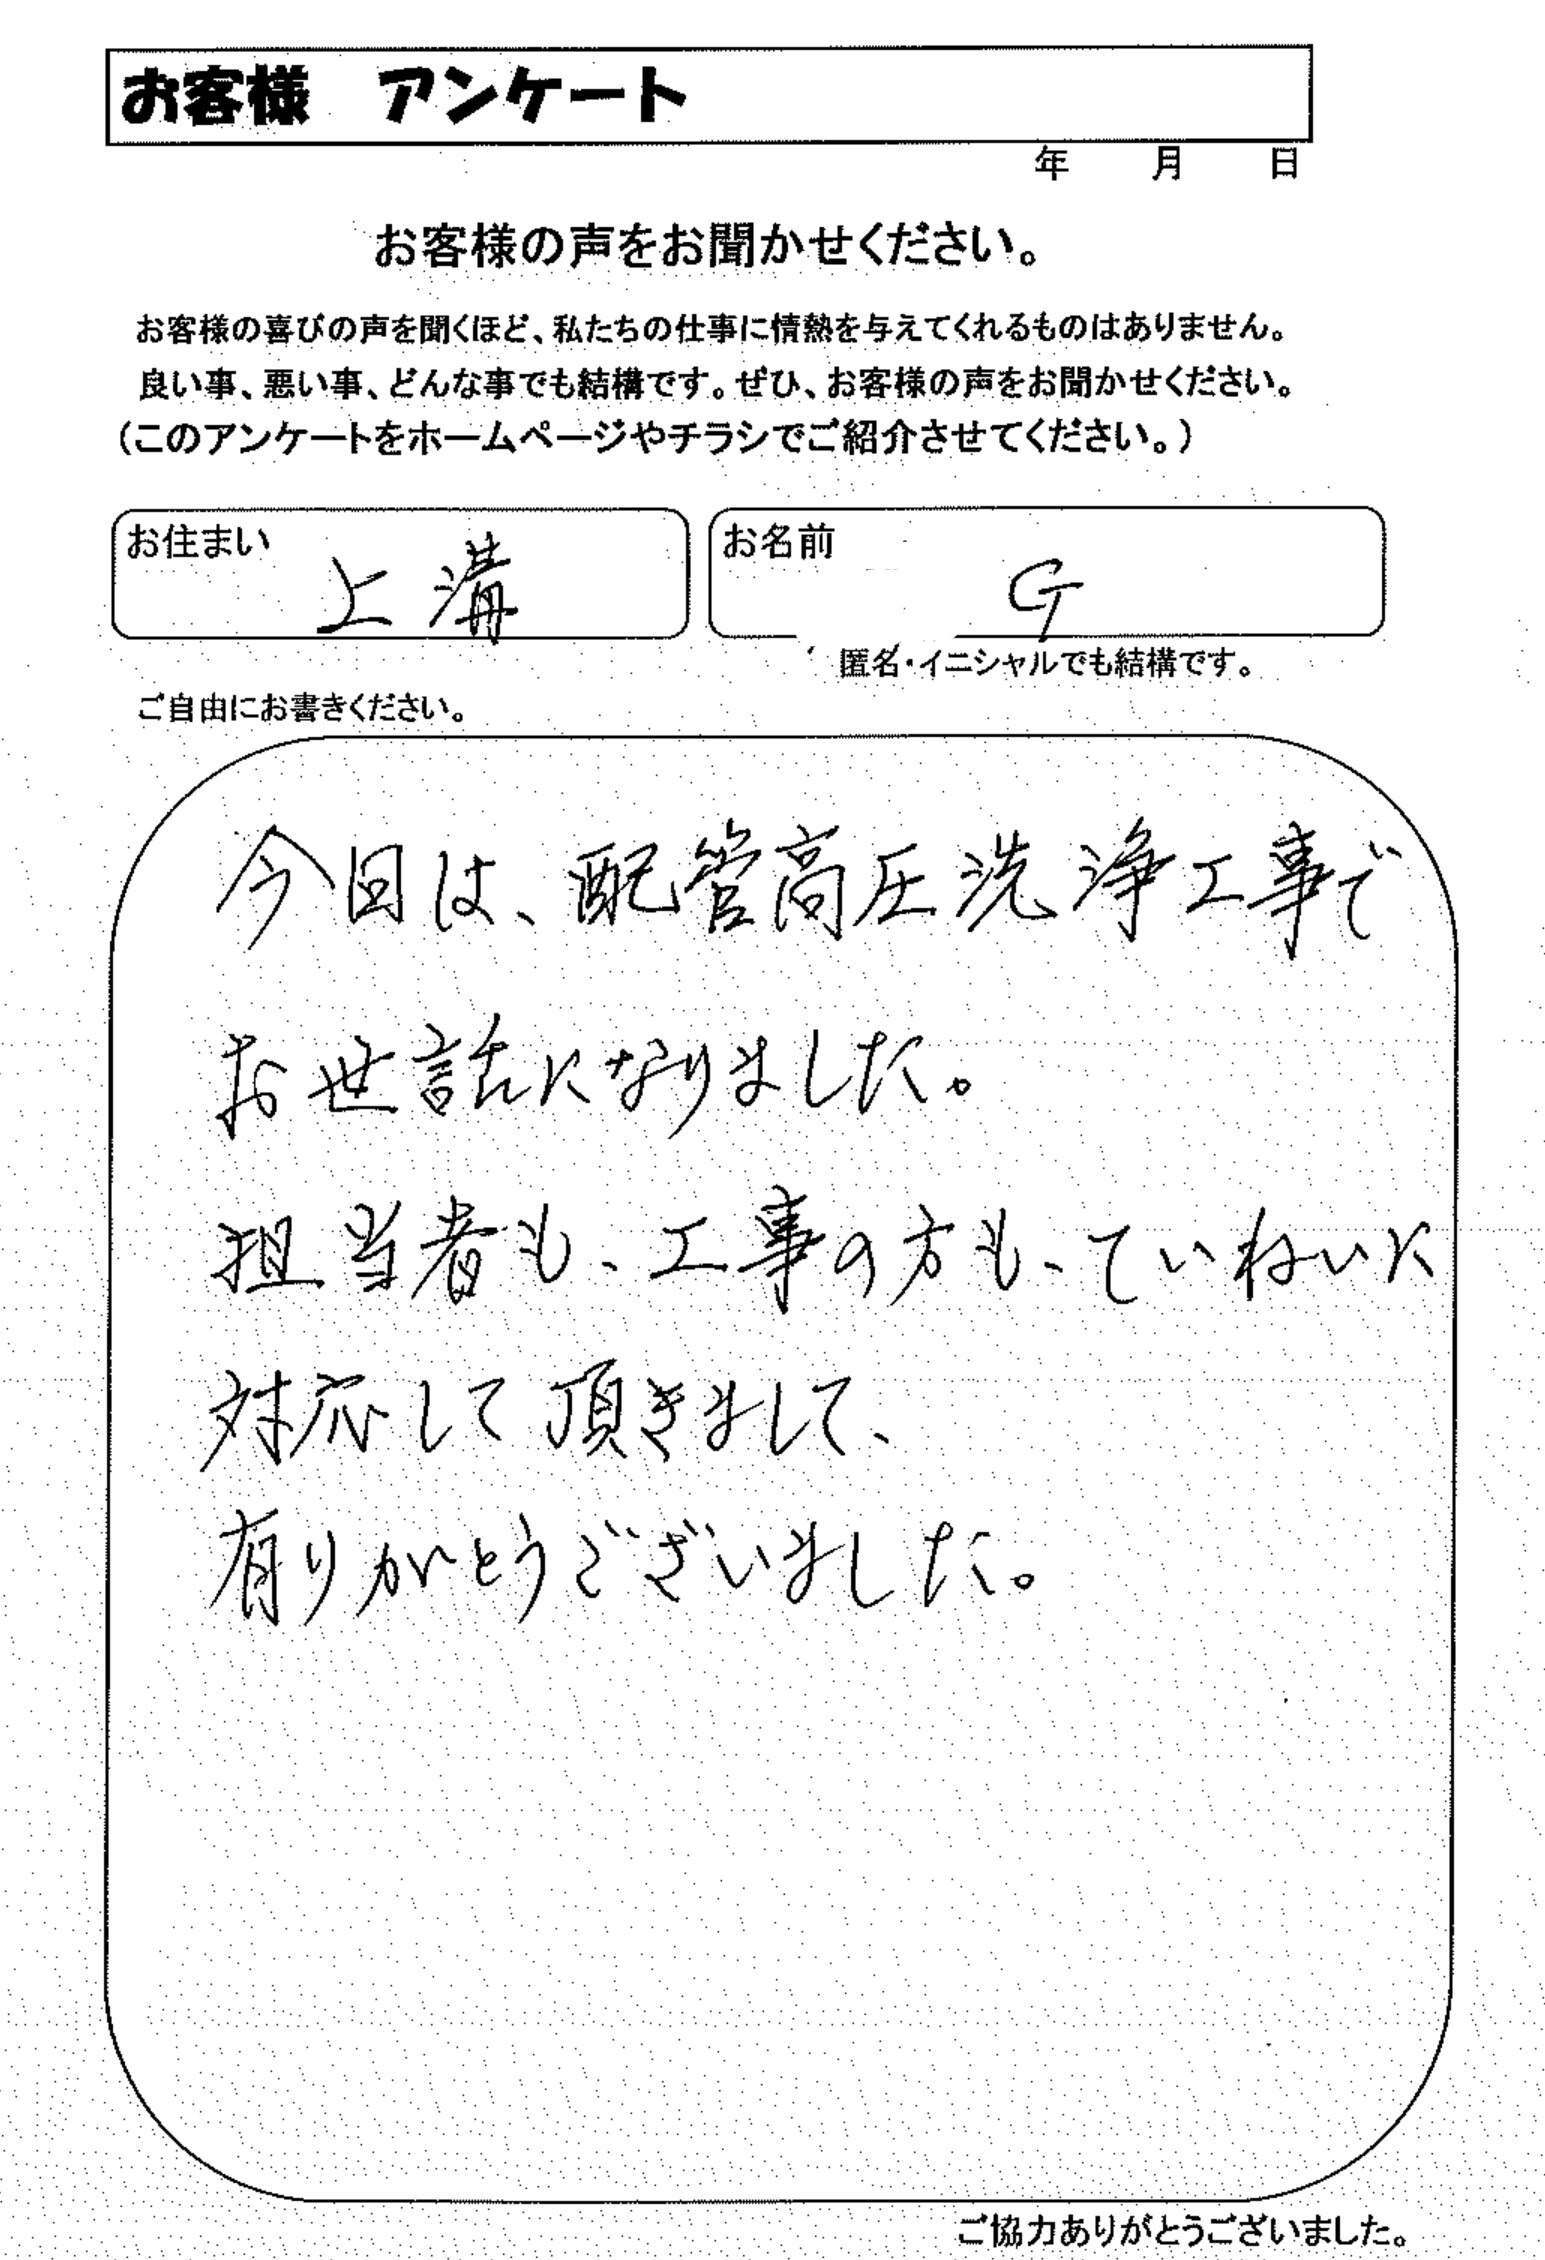 お客様　アンケート
年　月　日
お客様の声をお聞かせください。
お客様の喜びの声を聞くほど、私たちの仕事に情熱を与えてくれるものはありません。
良い事、悪い事、どんな事でも結構です。ぜひ、お客様の声をお聞かせください。
（このアンケートをホームページやチラシでご紹介させてください。）
お住まい　上溝　お名前　G
匿名・イニシャルでも結構です。
ご自由にお書きください。
今回は、配管高圧洗浄工事で
お世話になりました。
担当者も、工事の方も、ていねいに
対応して頂きまして、
有りがとうございました。
ご協力ありがとうございました。